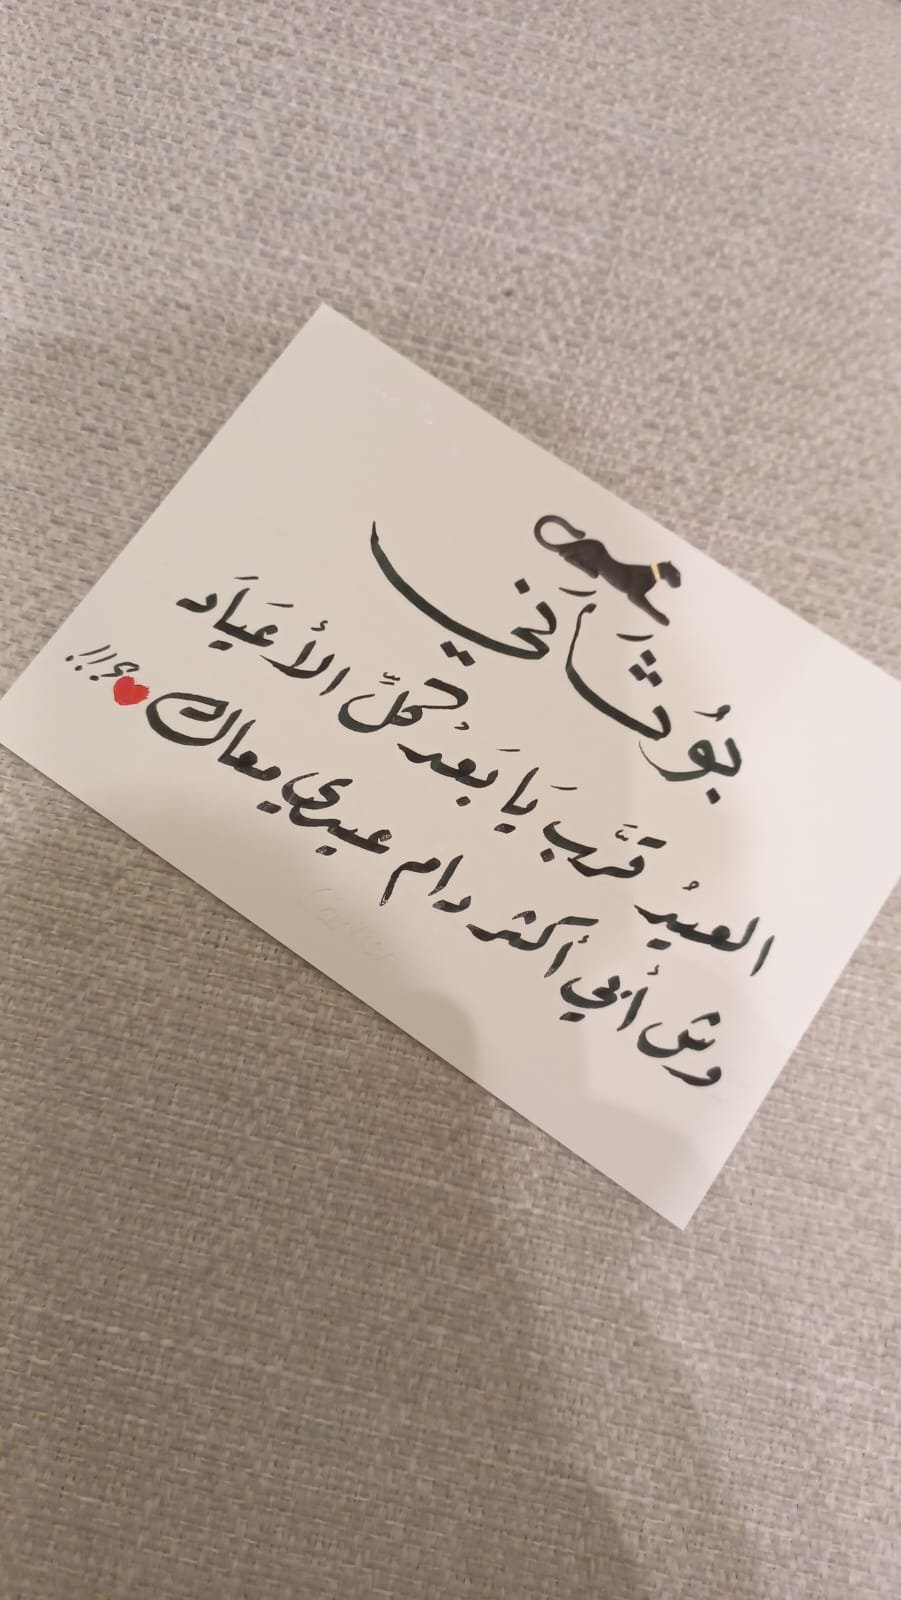 بُو ثَاَني
العيدُ قرَّب يَا بَعدْ كلِّ الأعيَاَد
وش أبي أكثر دام عيدي معاك❤️؟!!!
Cartier